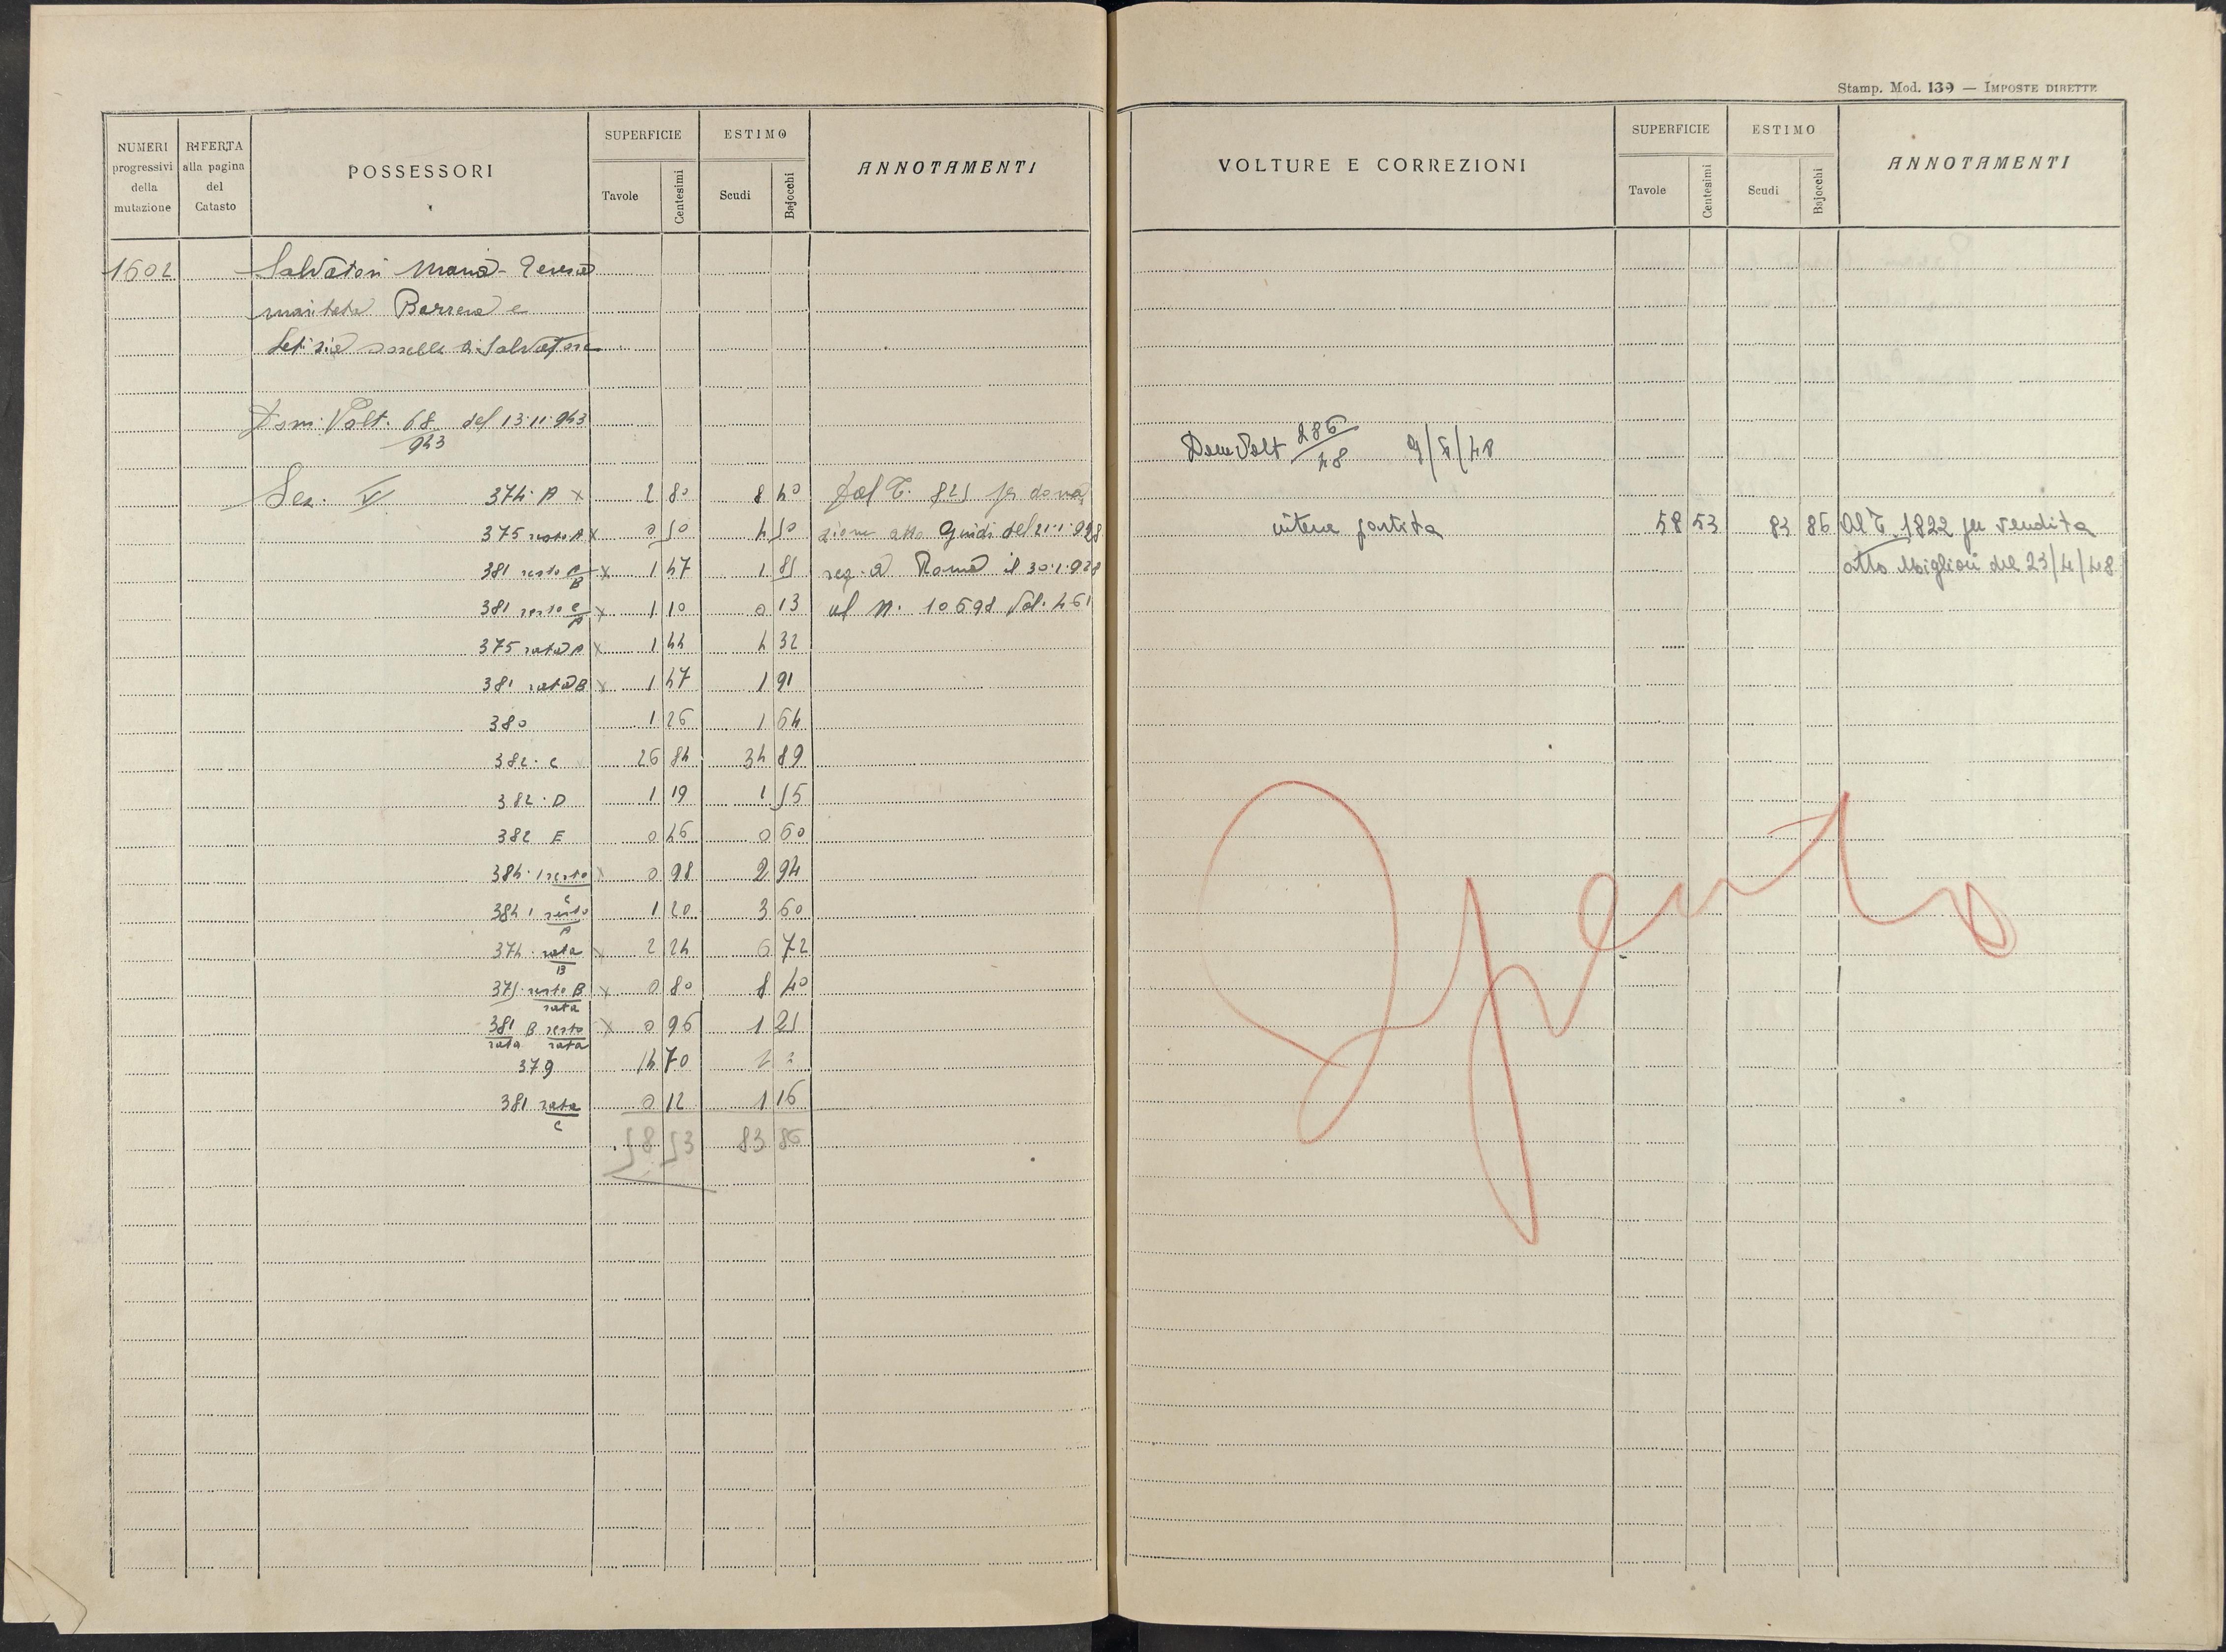 Stamp. Mod. 139 — IMPOSTE DIRETTE
NUMERI progressivi della mutazione
RIFERTA alla pagina del Catasto
POSSESSORI
SUPERFICIE
Tavole
Centesimi
ESTIMO
Scudi
Bajocchi
ANNOTAMENTI
1602 Salvatori Maria Teresa
maritata Barrera e
Letizia sorelle di Salvatore
Dom. Volt. 68/943 del 13.11.943
Sez. V 374 A x 2 80 8 40 Dal T. 825 per dona
375 resto A x 0 50 4 50 zione atto Guidi del 21.1.928
381 resto C/B x 1 47 1 85 reg. a Roma il 30.1.928
381 resto C/A x 1 10 0 13 al N. 10698 Vol. 461
375 rata A x 1 44 4 32
381 rata B x 1 47 1 91
380 1 26 1 64
382 C 26 84 34 89
382 D 1 19 1 55
382 E 0 46 0 60
384 1 resto/C x 0 98 2 94
384 1 resto/A 1 20 3 60
374 rata/B x 2 24 6 72
375 resto B/rata x 0 80 8 40
381/rata B resto/rata x 0 96 1 25
379 14 70
381 rata/C 0 12 1 16
58 53 83 86
VOLTURE E CORREZIONI
SUPERFICIE
Tavole
Centesimi
ESTIMO
Scudi
Bajocchi
ANNOTAMENTI
Dom Volt 286/48 9/6/48
intera partita 58 53 83 86 Al T. 1822 per vendita
atto Migliori del 23/4/48
Spento